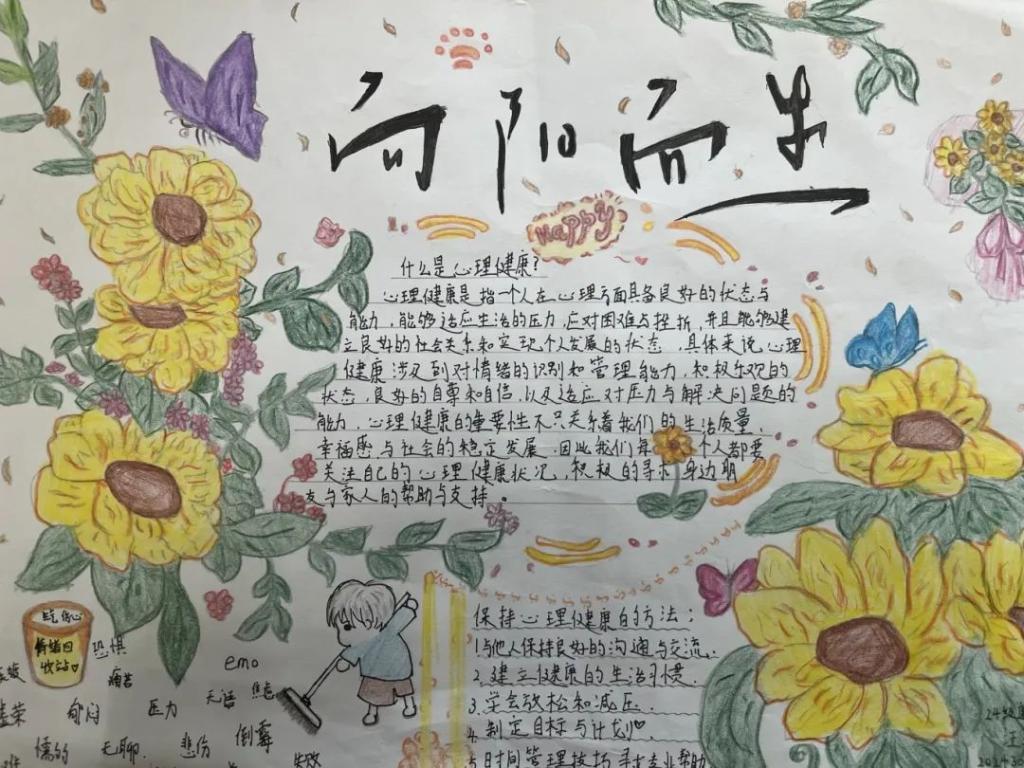 向阳而生
Happy
什么是心理健康?
心理健康是指一个人在心理方面具备良好的状态与
能力,能够适应生活的压力,应对困难与挫折,并且能够建
立良好的社会关系和实现个人发展的状态,具体来说,心理
健康涉及到对情绪的识别和管理能力,积极乐观的
状态,良好的自尊和自信,以及适应对压力与解决问题的
能力,心理健康的重要性不只关系着我们的生活质量,
幸福感与社会的稳定发展,因此我们每一个人都要
关注自己的心理健康状况,积极的寻求身边朋
友与家人的帮助与支持。
保持心理健康的方法:
1.与他人保持良好的沟通与交流.
2.建立健康的生活习惯.
3.学会放松和减压.
4.制定目标与计划♡.
5.时间管理技巧寻求专业帮助
情绪回
收站
恐惧
痛苦
emo
无语
焦虑
郁闷
压力
倒霉
懦弱
无聊.
悲伤
失败
24级
汪